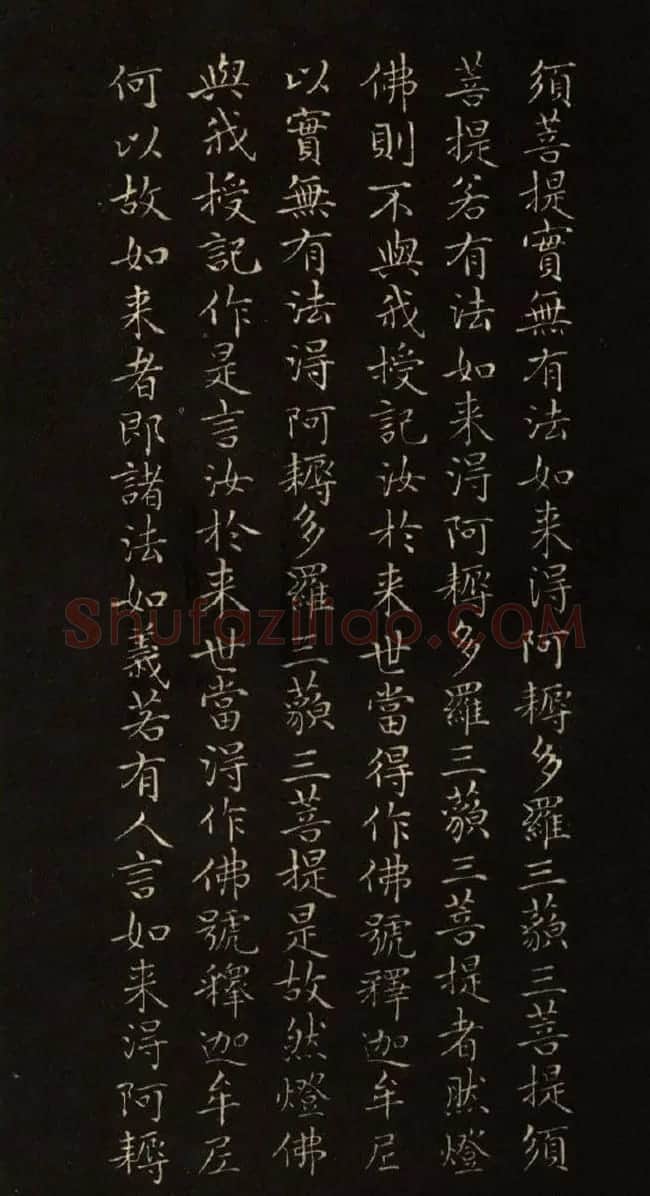 須菩提實無有法如来淂阿耨多羅三藐三菩提須
菩提若有法如来淂阿耨多羅三藐三菩提者然燈
佛則不與我授記汝於来世當得作佛號釋迦牟尼
以實無有法淂阿耨多羅三藐三菩提是故然燈佛
與我授記作是言汝於来世當淂作佛號釋迦牟尼
何以故如来者即諸法如義若有人言如来淂阿耨
Shufaziliao.COM